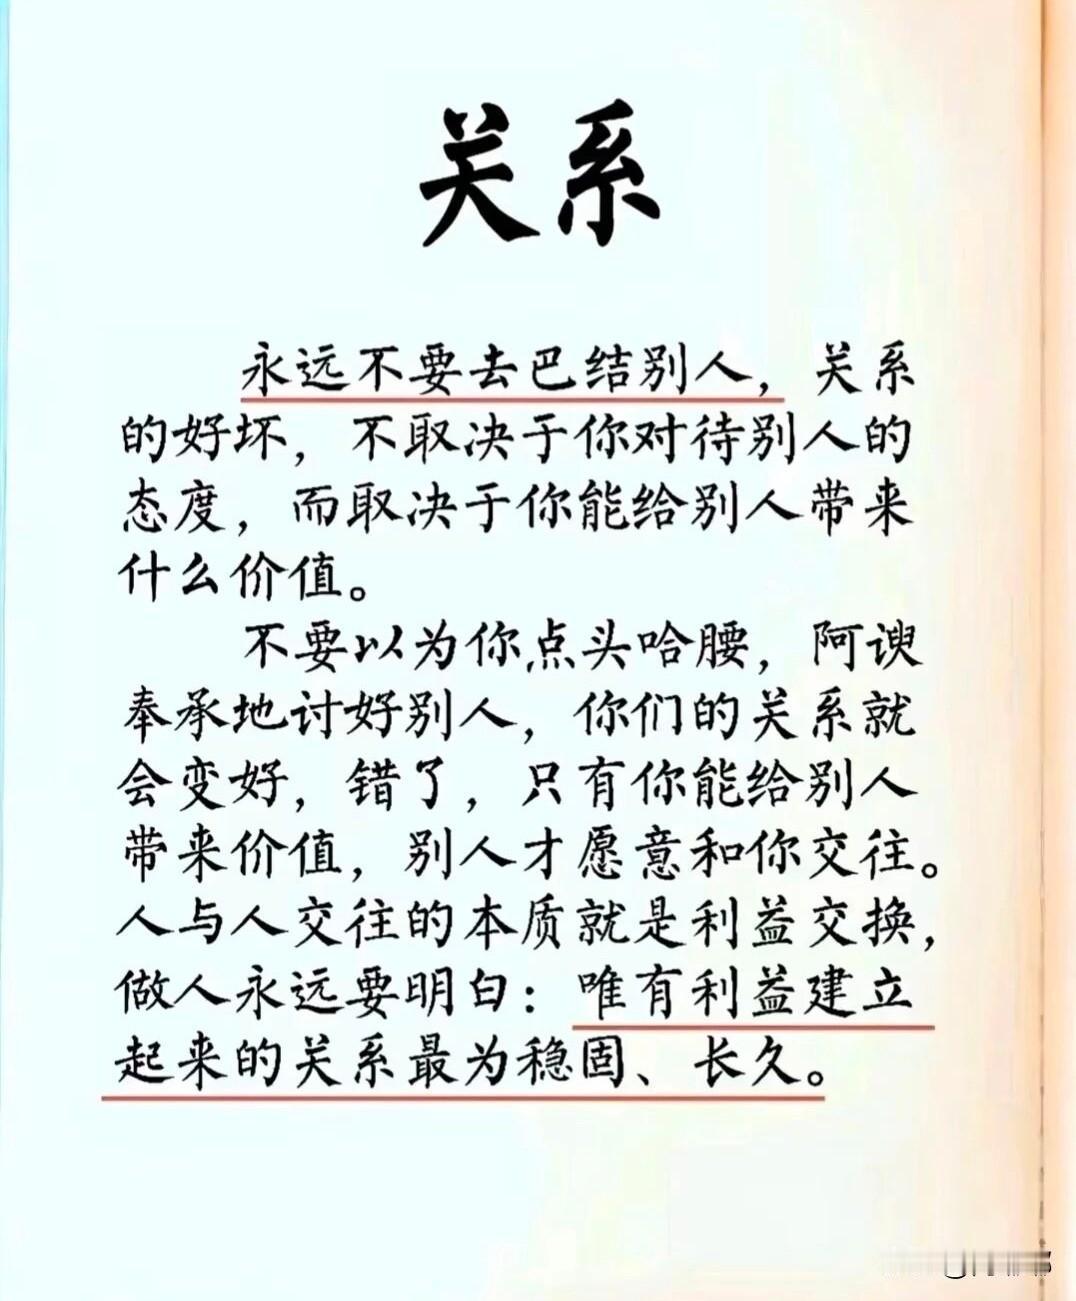 关系
永远不要去巴结别人，关系
的好坏，不取决于你对待别人的
态度，而取决于你能给别人带来
什么价值。
不要以为你点头哈腰，阿谀
奉承地讨好别人，你们的关系就
会变好，错了，只有你能给别人
带来价值，别人才愿意和你交往。
人与人交往的本质就是利益交换，
做人永远要明白：唯有利益建立
起来的关系最为稳固、长久。